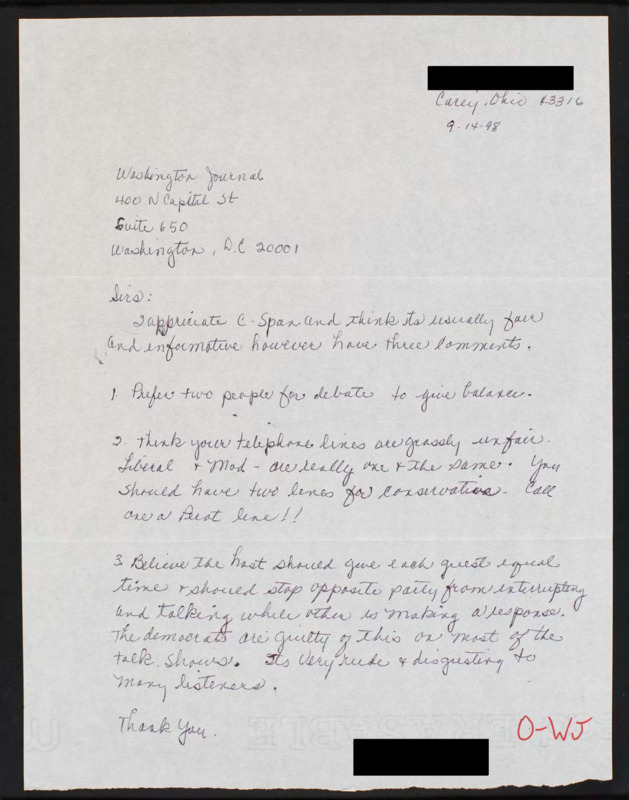 Carey, Ohio 43316
9-14-98
Washington Journal
400 N Capitol St
Suite 650
Washington, D.C 20001
Sirs:
I appreciate C-Span and think its usually fair
and informative however have three comments.
1. Prefer two people for debate to give balance.
2. Think your telephone lines are grossly unfair.
Liberal + Mod - are really one + the same. You
should have two lines for conservative - Call
one a Perot line!!
3 Believe the host should give each guest equal
time + should stop opposite party from interrupting
and talking while other is making a response.
The democrats are guilty of this on most of the
talk shows. Its very rude + disgusting to
many listeners.
Thank You.
O-WJ